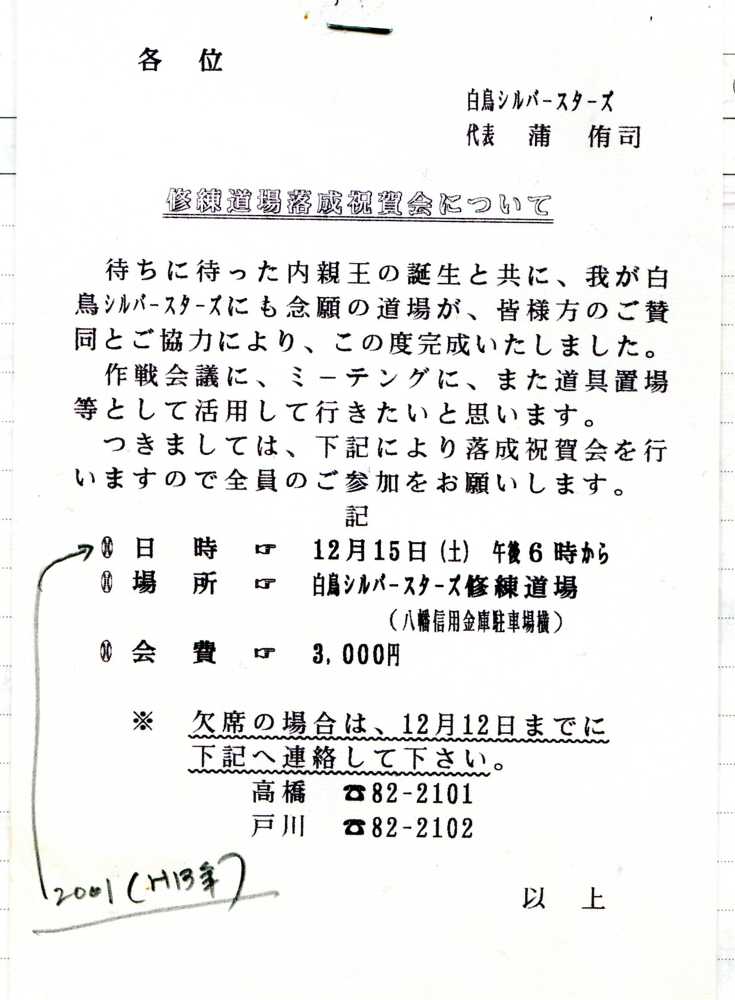 各　位
白鳥シルバースターズ
代表　蒲　侑司
修練道場落成祝賀会について
　待ちに待った内親王の誕生と共に、我が白
鳥シルバースターズにも念願の道場が、皆様方のご賛
同とご協力により、この度完成いたしました。
　作戦会議に、ミーテングに、また道具置場
等として活用して行きたいと思います。
　つきましては、下記により落成祝賀会を行
いますので全員のご参加をお願いします。
記
日　時　☞　12月15日(土)　午後6時から
場　所　☞　白鳥シルバースターズ修練道場
(八幡信用金庫駐車場横)
会　費　☞　3,000円
※　欠席の場合は、12月12日までに
下記へ連絡して下さい。
高橋　☎82-2101
戸川　☎82-2102
2001(H13年)
以　上